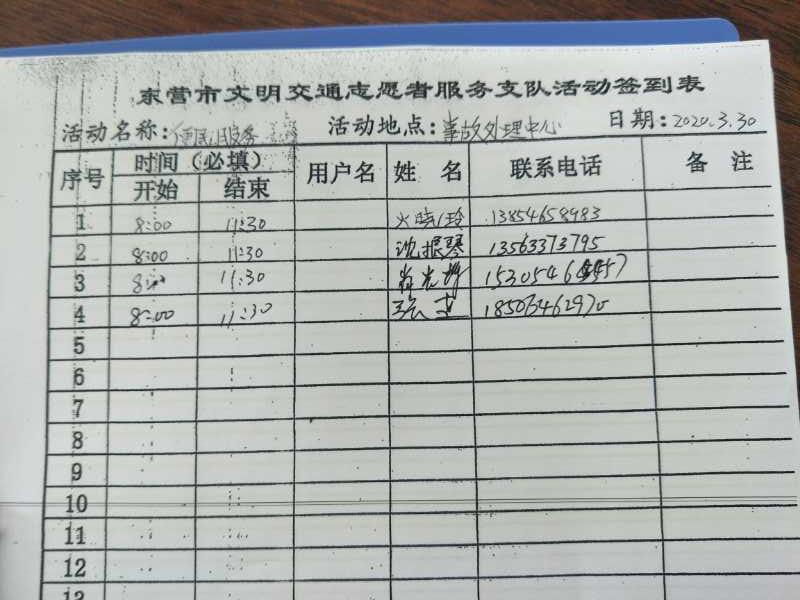 东营市文明交通志愿者服务支队活动签到表
活动名称:便民服务 活动地点:事故处理中心 日期:2020.3.30
序号 时间（必填） 用户名 姓 名 联系电话 备 注
开始 结束
1 8:00 11:30 火晓玲 13854658983
2 8:00 11:30 沈振琴 13563373795
3 11:30
4 8:00 11:30 18506462970
5
6
7
8
9
10
11
12
13